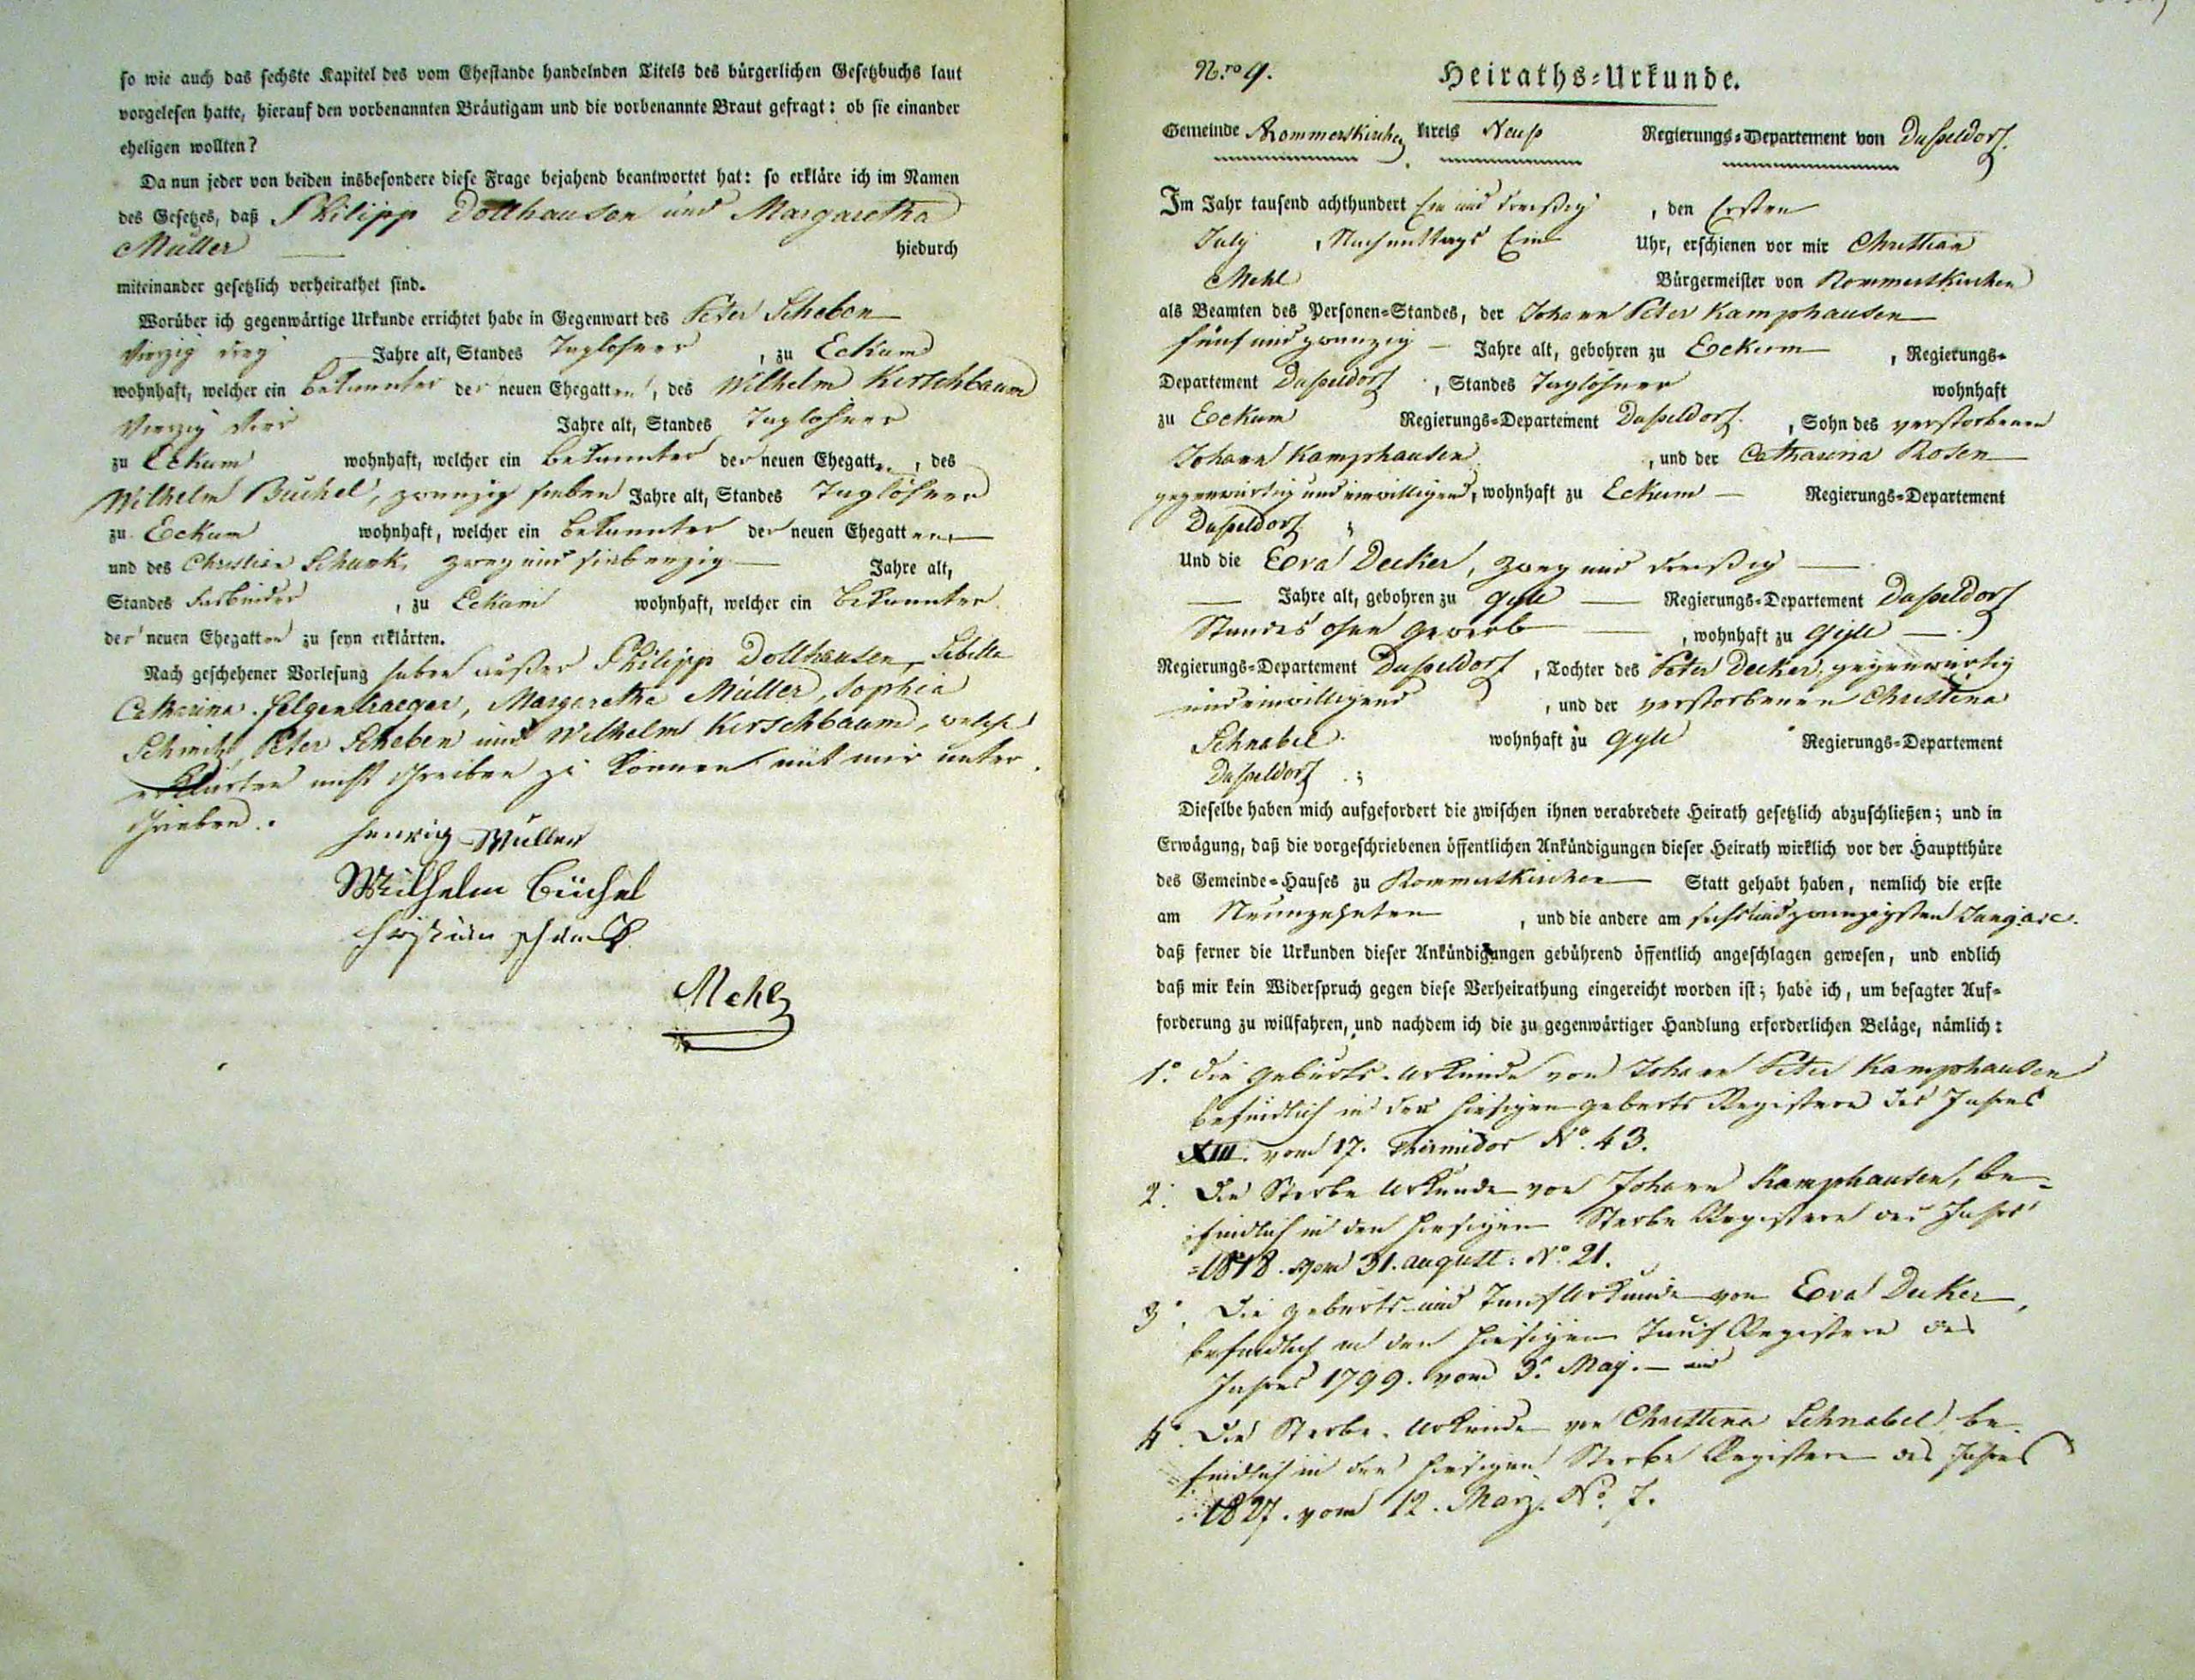 so wie auch das sechste Kapitel des vom Ehestande handelnden Titels des bürgerlichen Gesetzbuchs laut
vorgelesen hatte, hierauf den vorbenannten Bräutigam und die vorbenannte Braut gefragt: ob sie einander
eheligen wollten?
Da nun jeder von beiden insbesondere diese Frage bejahend beantwortet hat: so erkläre ich im Namen
des Gesetzes, daß Philipp Dollhausen und Margaretha
Müller hiedurch
miteinander gesetzlich verheirathet sind.
Worüber ich gegenwärtige Urkunde errichtet habe in Gegenwart des Peter Scheben
vierzig drey Jahre alt, Standes Taglöhner, zu Eckum
wohnhaft, welcher ein bekannter der neuen Ehegatten, des Wilhelm Kirschbaum
vierzig vier Jahre alt, Standes Taglöhner
zu Eckum wohnhaft, welcher ein bekannter der neuen Ehegatten, des
Wilhelm Büchel, zwanzig sieben Jahre alt, Standes Taglöhner
zu Eckum wohnhaft, welcher ein bekannter der neuen Ehegatten
und des Christian Schunk, zwey und siebenzig Jahre alt,
Standes Fasbinder, zu Eckum wohnhaft, welcher ein bekannter
der neuen Ehegatten zu seyn erklärten.
Nach geschehener Vorlesung haben außer Philipp Dollhausen, Sibilla
Catharina Felgentraeger, Margaretha Müller, Sophia
Schmitz, Peter Scheben und Wilhelm Kirschbaum, welche
erklärten nicht schreiben zu können mit mir unter
schrieben.
Henrich Müller
Wilhelm Büchel
Christian Schunk
Mehl
N.ro 9. Heiraths-Urkunde.
Gemeinde Rommerskirchen Kreis Neuß Regierungs-Departement von Dußeldorf.
Im Jahr tausend achthundert Ein und dreißig, den Ersten
July, Nachmittags Ein Uhr, erschienen vor mir Christian
Mehl Bürgermeister von Rommerskirchen
als Beamten des Personen-Standes, der Johann Peter Kamphausen
fünf und zwanzig Jahre alt, gebohren zu Eckum, Regierungs-
Departement Dußeldorf, Standes Taglöhner wohnhaft
zu Eckum Regierungs-Departement Dußeldorf, Sohn des verstorbenen
Johann Kamphausen, und der Catharina Rosen
gegenwärtig und einwilligend, wohnhaft zu Eckum Regierungs-Departement
Dußeldorf;
Und die Eva Decker, zwey und dreißig
Jahre alt, gebohren zu Gyll Regierungs-Departement Dußeldorf
Standes ohne Gewerb, wohnhaft zu Gyll
Regierungs-Departement Dußeldorf, Tochter des Peter Decker, gegenwärtig
und einwilligend, und der verstorbenen Christina
Schnabel wohnhaft zu Gyll Regierungs-Departement
Dußeldorf;
Dieselbe haben mich aufgefordert die zwischen ihnen verabredete Heirath gesetzlich abzuschließen; und in
Erwägung, daß die vorgeschriebenen öffentlichen Ankündigungen dieser Heirath wirklich vor der Hauptthüre
des Gemeinde-Hauses zu Rommerskirchen Statt gehabt haben, nemlich die erste
am Neunzehnten, und die andere am sechs und zwanzigsten
daß ferner die Urkunden dieser Ankündigungen gebührend öffentlich angeschlagen gewesen, und endlich
daß mir kein Widerspruch gegen diese Verheirathung eingereicht worden ist; habe ich, um besagter Auf-
forderung zu willfahren, und nachdem ich die zu gegenwärtiger Handlung erforderlichen Beläge, nämlich:
1.° Die Geburts-Urkunde von Johann Peter Kamphausen
befindlich in den hiesigen Geburts Registern des Jahres
XIII. vom 17. Thermidor N°. 43.
2. Die Sterbe Urkunde von Johann Kamphausen, be-
findlich in den hiesigen Sterbe Registern des Jahres
1818. vom 31. August. N° 21.
3°. Die Geburts und Tauf Urkunde von Eva Decker,
befindlich in den hiesigen Tauf Registern des
Jahres 1799. vom 3. May. und
4°. Die Sterbe-Urkunde von Christina Schnabel be-
findlich in den hiesigen Sterbe Registern des Jahres
1827. vom 12. Marz. N°. 7.